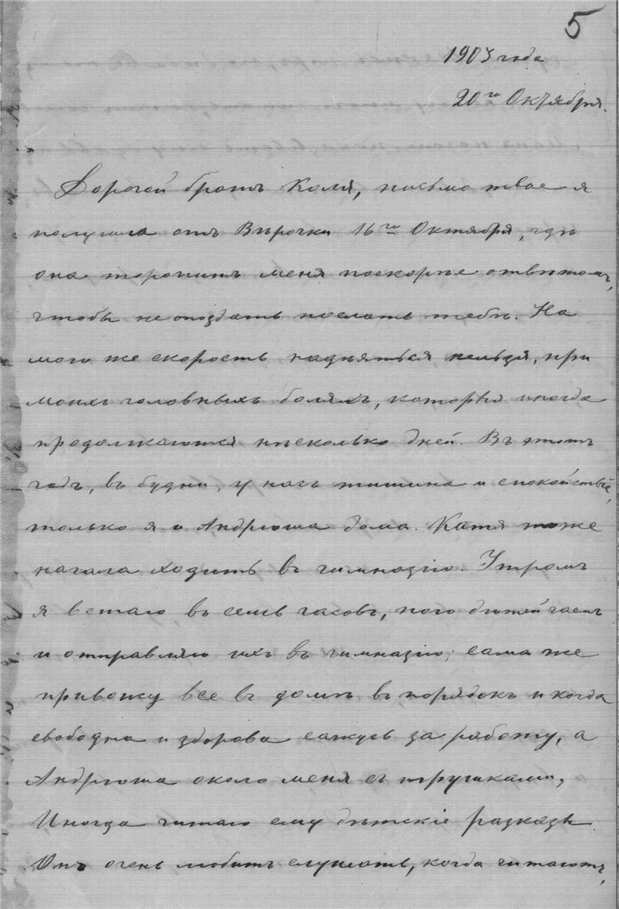 5
1903 года
20го Октября.
Дорогой братъ Коля, письмо твое я
получила отъ Вѣрочки 16го Октября, гдѣ
она торопитъ меня поскорѣе отвѣтомъ,
чтобы не опоздать послать тебѣ. На
мою же скорость надѣяться нельзя, при
моихъ головныхъ боляхъ, которыя иногда
продолжаются нѣсколько дней. Въ этотъ
годъ, въ будни, у насъ тишина и спокойствіе,
только я и Андрюша дома. Катя тоже
начала ходить въ гимназію. Утромъ
я встаю въ семь часовъ, пою дѣтей чаемъ
и отправляю ихъ въ гимназію; сама же
привожу все въ домѣ въ порядокъ и когда
свободна и здорова сажусь за работу, а
Андрюша около меня съ игрушками,
Иногда читаю ему дѣтскіе разказы.
Онъ очень любитъ слушать, когда читаютъ,